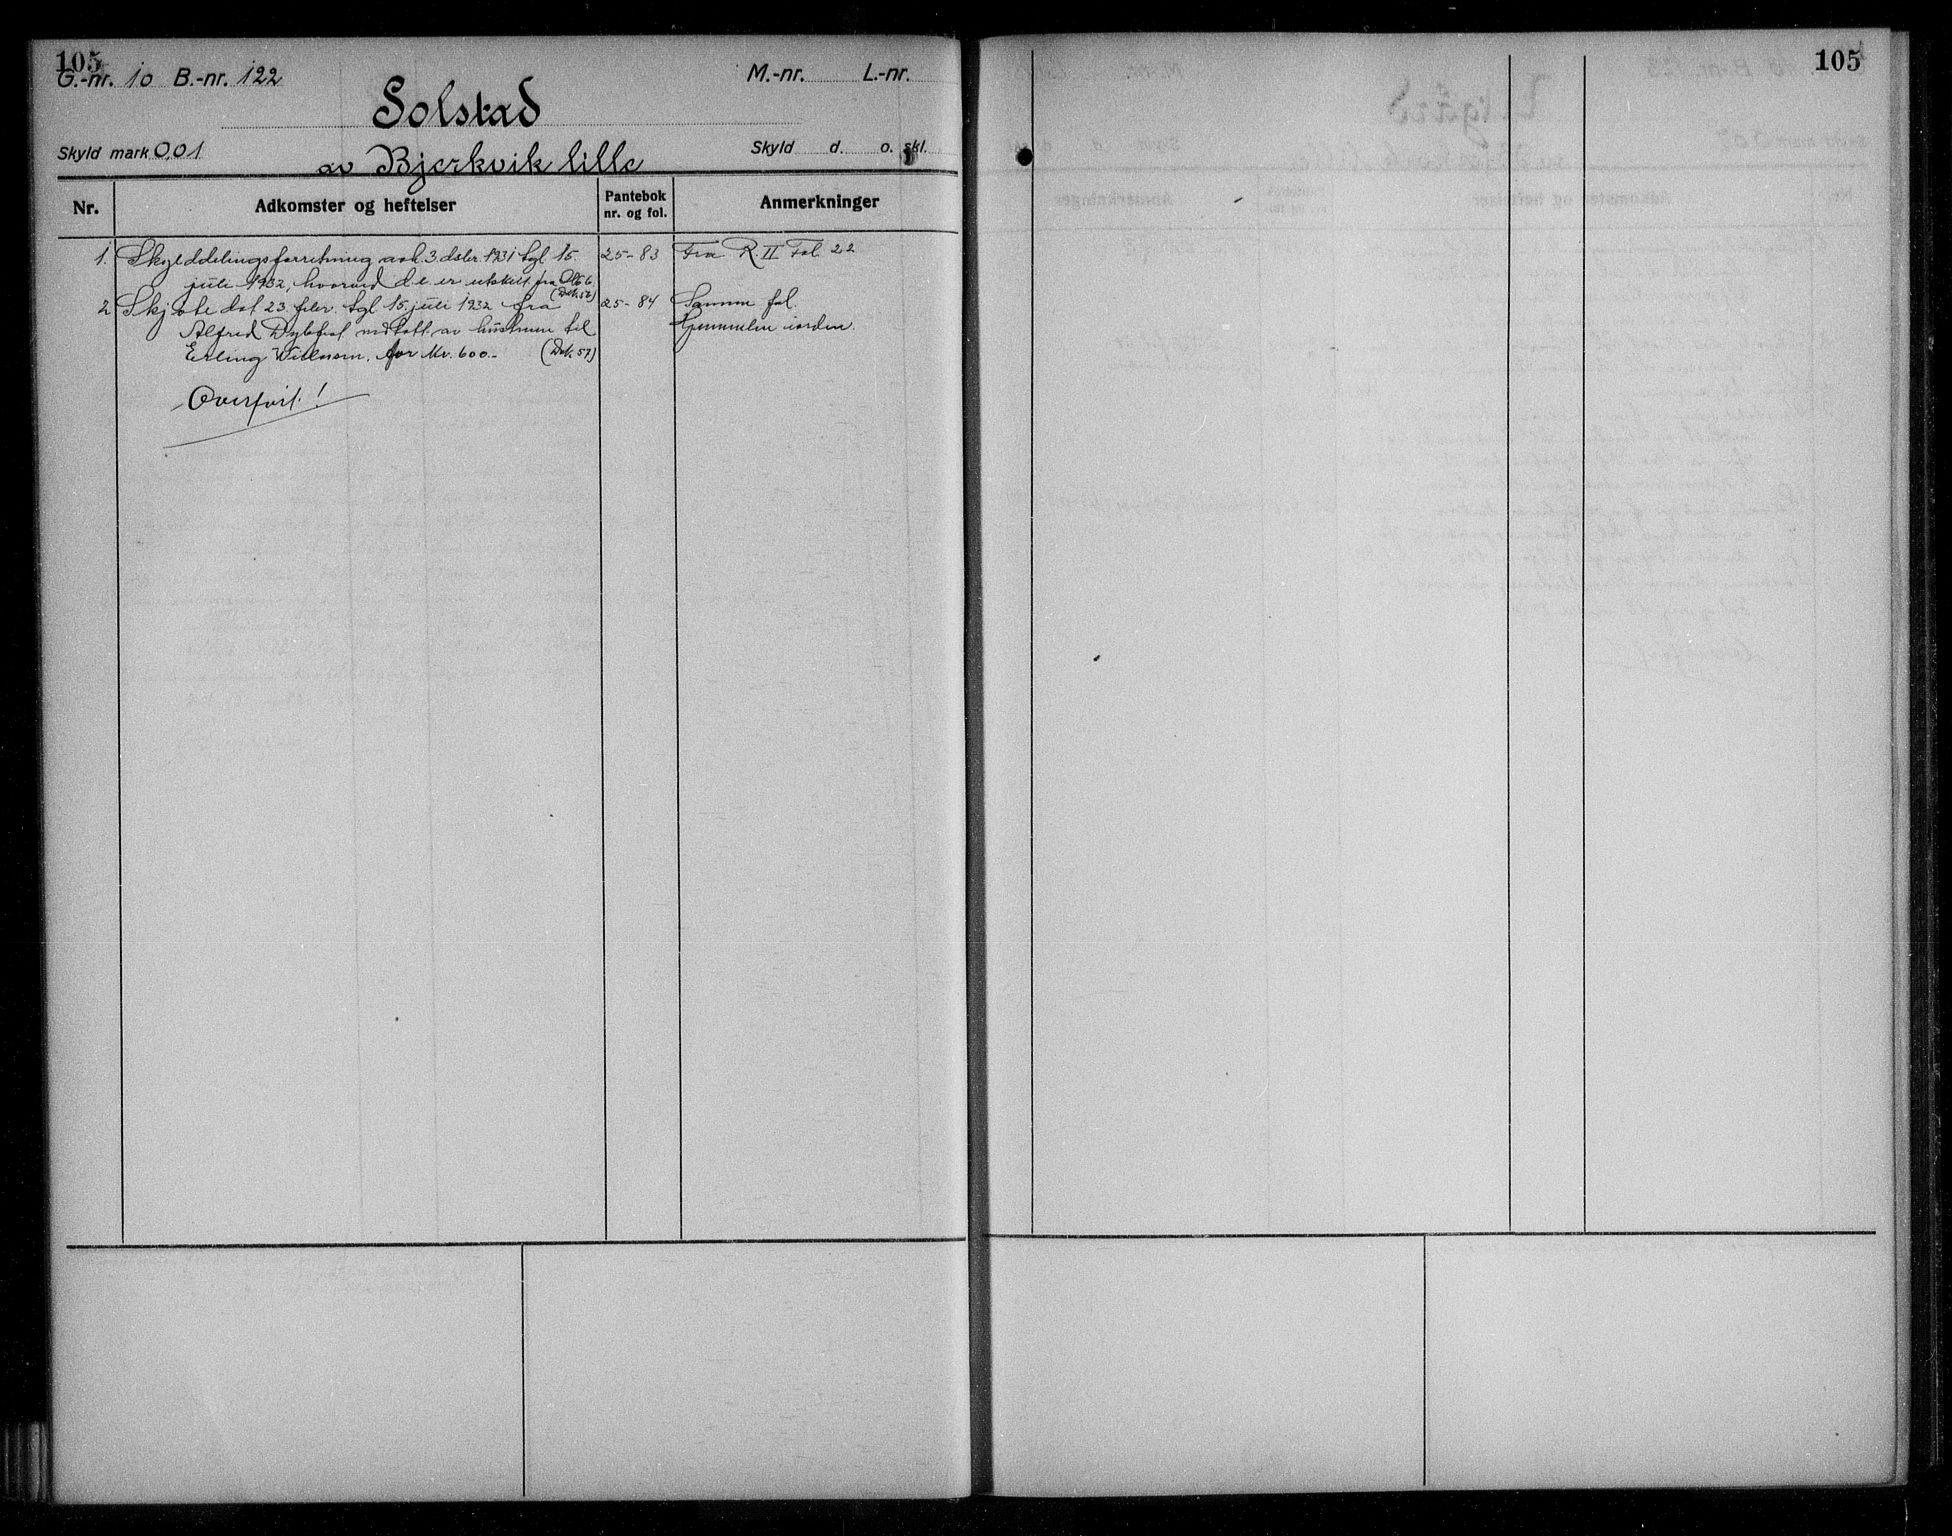 105
G.-nr. 10 B.-nr. 122 M.-nr. L.-nr.
Solstad
Skyld mark 0,01 Skyld d. o. skl.
av Bjerkvik lille
Nr. Adkomster og heftelser Pantebok nr. og fol. Anmerkninger
1. Skylddelingsforretning avh. 3 dsbr. 1931 tgl. 15. 25-83 Fra R. II Fol. 22
juli 1932, hvorved d.e. er utskilt fra
(Dok. 56)
2 Skjøte dat 23. febr. tgl 15 juli 1932 fra 25-84 Samme fol.
Alfred med av hustrue til Hjemmelen iorden.
Erling Willumsen, for Kr. 600.- (Dok. 57)
Overført!
105